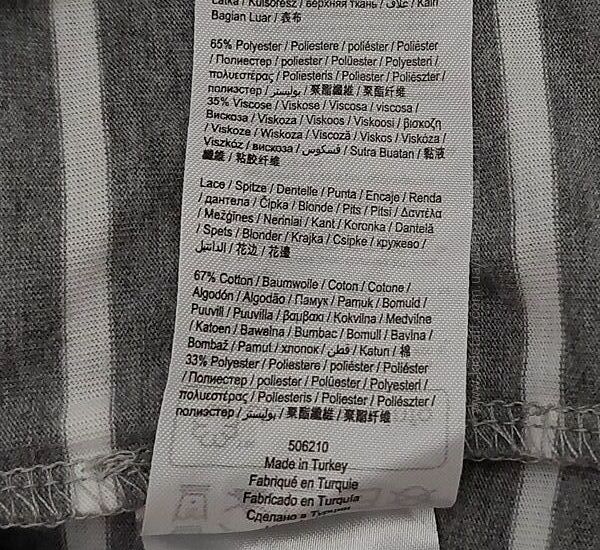 Latka / Külsőrész / верхняя ткань / غلاف / Kain
Bagian Luar / 表布
65% Polyester / Poliestere / poliéster / Poliéster
/ Полиестер / poliester / Polüester / Polyesteri /
πολυεστέρας / Poliesteris / Poliester / Poliészter /
полиэстер / بوليستر / 聚酯纖維 / 聚酯纤维
35% Viscose / Viskose / Viscosa / viscosa /
Вискоза / Viskoza / Viskoos / Viskoosi / βισκόζη
/ Viskoze / Wiskoza / Viscoză / Viskos / Viskóza /
Viszkóz / вискоза / فسكوس / Sutra Buatan / 黏液
纖維 / 粘胶纤维
Lace / Spitze / Dentelle / Punta / Encaje / Renda
/ дантела / Čipka / Blonde / Pits / Pitsi / Δαντέλα
/ Mežģīnes / Neriniai / Kant / Koronka / Dantelă
/ Spets / Blonder / Krajka / Csipke / кружево /
الدانتيل / 花边 / 花邊
67% Cotton / Baumwolle / Coton / Cotone /
Algodón / Algodão / Памук / Pamuk / Bomuld /
Puuvill / Puuvilla / βαμβακι / Kokvilna / Medvilne
/ Katoen / Bawelna / Bumbac / Bomull / Bavlna /
Bombaž / Pamut / хлопок / قطن / Katun / 棉
33% Polyester / Poliestere / poliéster / Poliéster
/ Полиестер / poliester / Polüester / Polyesteri /
πολυεστέρας / Poliesteris / Poliester / Poliészter /
полиэстер / بوليستر / 聚酯纖維 / 聚酯纤维
506210
Made in Turkey
Fabriqué en Turquie
Fabricado en Turquía
Сделано в Турции